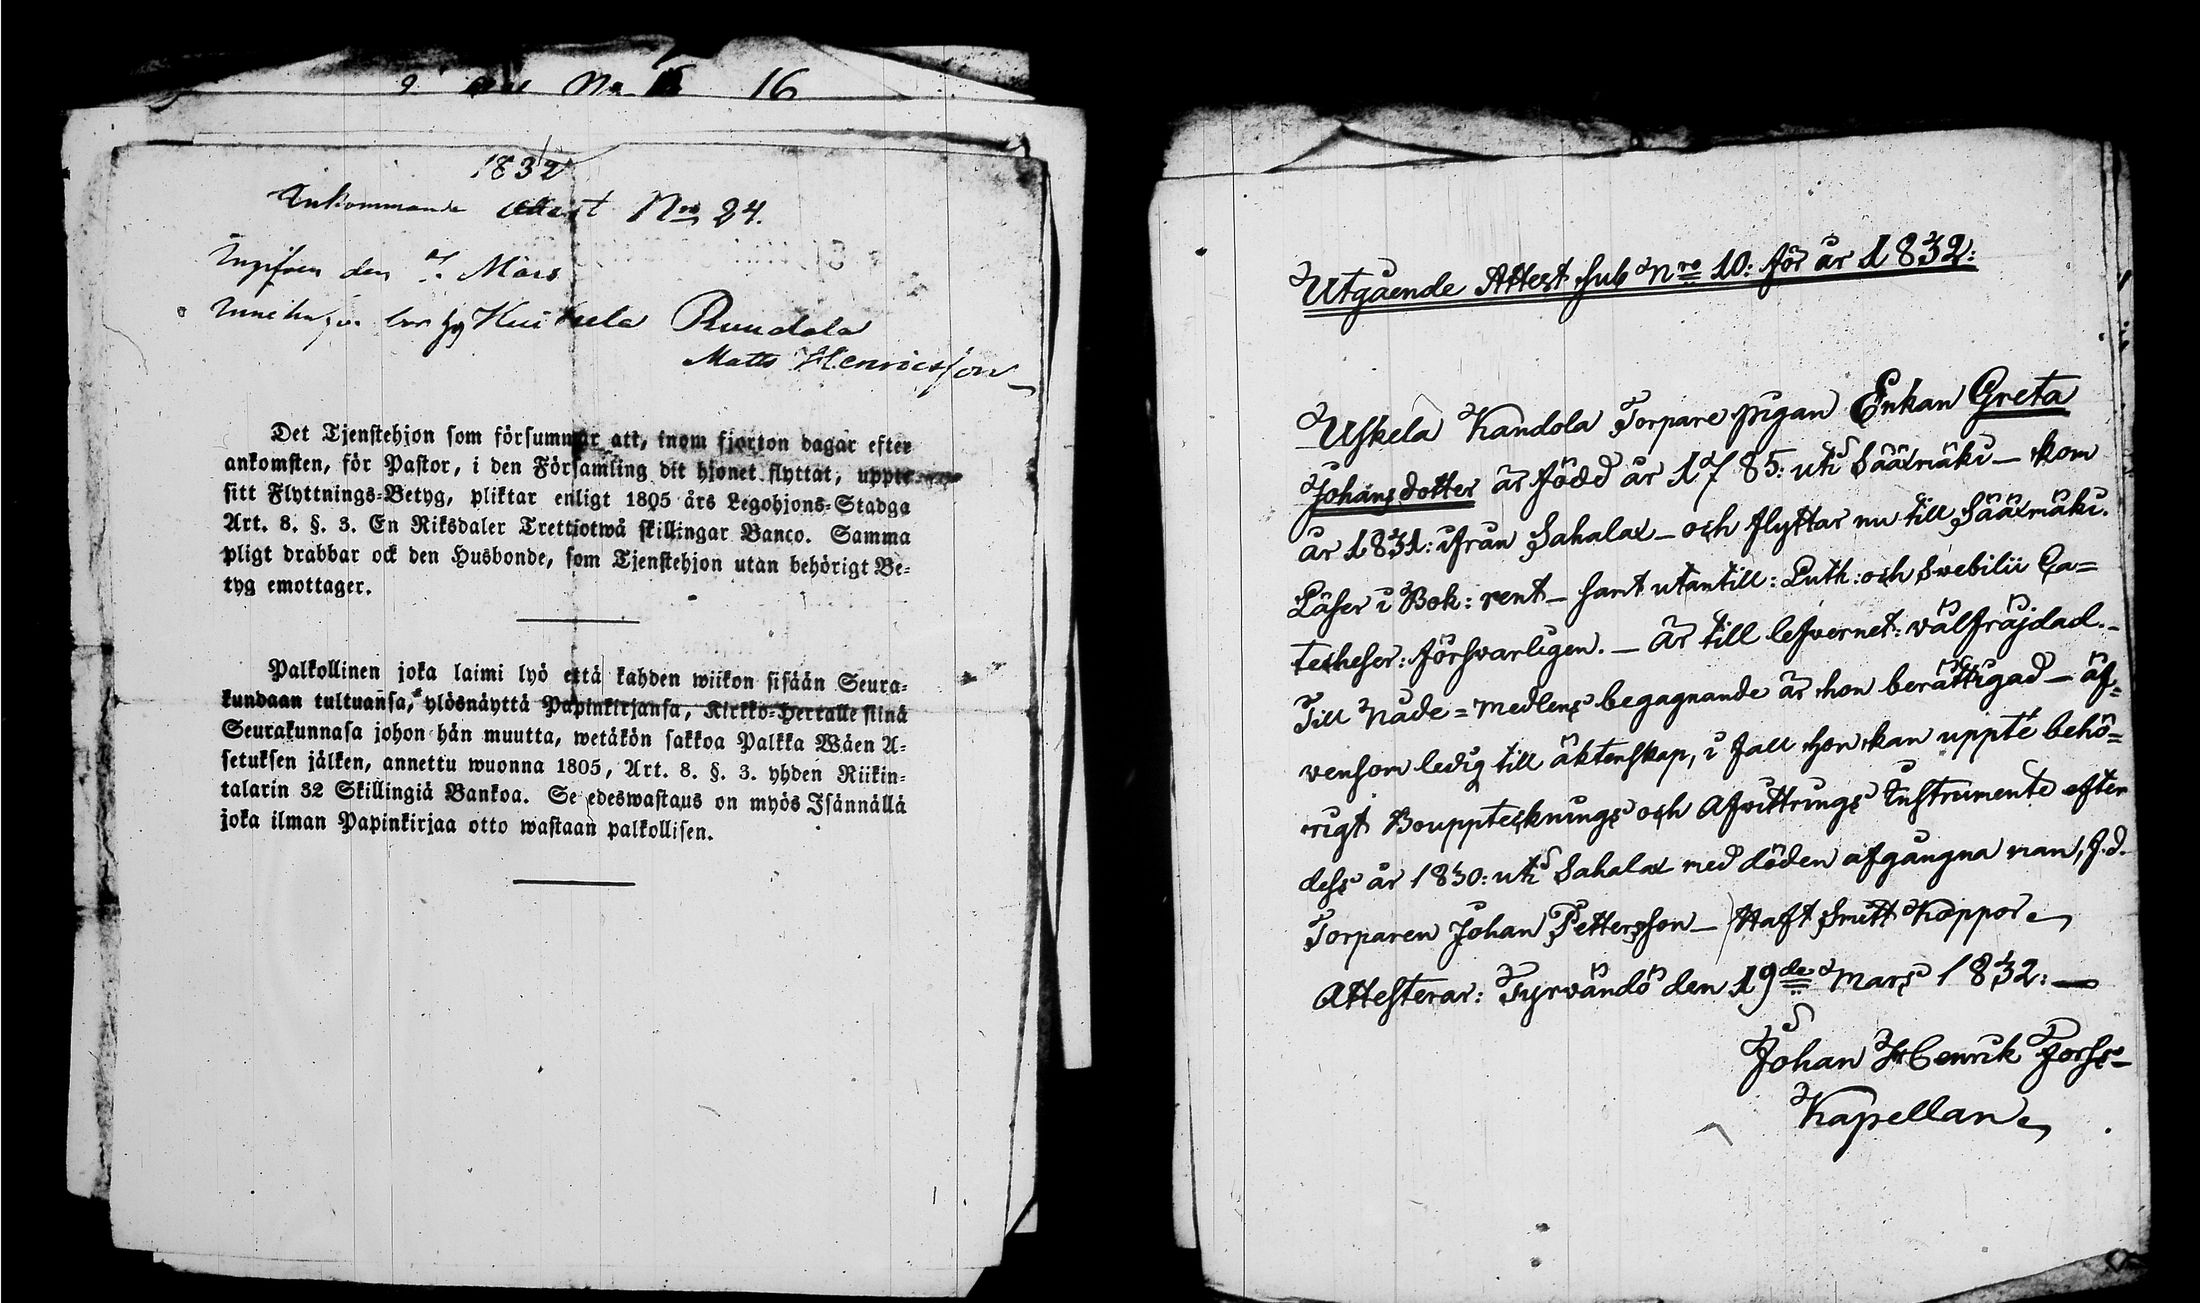 No 16
1832
Inkommande Attest Nro 24.
Ingifven den 7. Mars
Innehafv. Ruudala
Matts Henricsson
Det Tjenstehjon som försummar att, inom fjorton dagar efter
ankomsten, för Pastor, i den Församling dit hjonet flyttat, uppte
sitt Flyttnings-Betyg, pliktar enligt 1805 års Legohjons-Stadga
Art. 8. §. 3. En Riksdaler Trettiotwå skillingar Banco. Samma
pligt drabbar ock den Husbonde, som Tjenstehjon utan behörigt Be-
tyg emottager.
Palkollinen joka laimi lyö että kahden wiikon sisään Seura-
kundaan tultuansa, ylösnäyttä Papinkirjansa, Kirkko-Herralle siinä
Seurakunnasa johon hän muutta, wetäkön sakkoa Palkka Wäen A-
setuksen jälken, annettu wuonna 1805, Art. 8. §. 3. yhden Riikin-
talarin 32 Skillingiä Bankoa. Se edeswastaus on myös Isännällä
joka ilman Papinkirjaa otto wastaan palkollisen.
Utgående Attest sub Nro 10: för år 1832:
Uskela Kandola Torpare pigan Enkan Greta
Johansdotter är född år 1785: uti Sääxmäki – kom
år 1831: ifrån Sahalax – och flyttar nu till Sääxmäki.
Läser i Bok: rent – samt utantill: Luth: och Svebilii Ca=
techeser: försvarligen. – Är till lefvernet: välfräjdad. –
Till Nåde=medlens begagnande är hon berättigad – äf=
vensom ledig till äktenskap, i fall hon kan uppté behö=
rigt Bouppteknings och Afvittrings Instrumente efter
dess år 1830: uti Sahalax med döden afgångna man, f.d.
Torparen Johan Pettersson – Haft Smitt Koppor
Attesterar: Tyrvändö den 19de Mars 1832: –
Johan Henrik Forss –
Kapellan